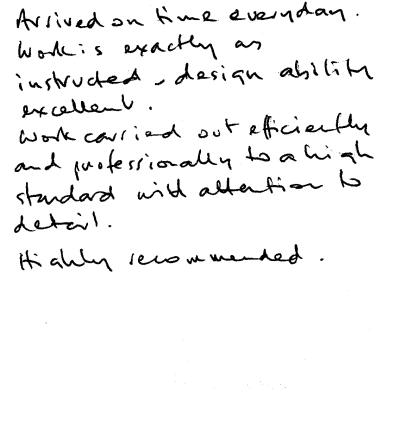 Arrived on time everyday.
Work is exactly as
instructed - design ability
excellent.
Work carried out efficiently
and professionally to a high
standard with attention to
detail.
Highly recommended.